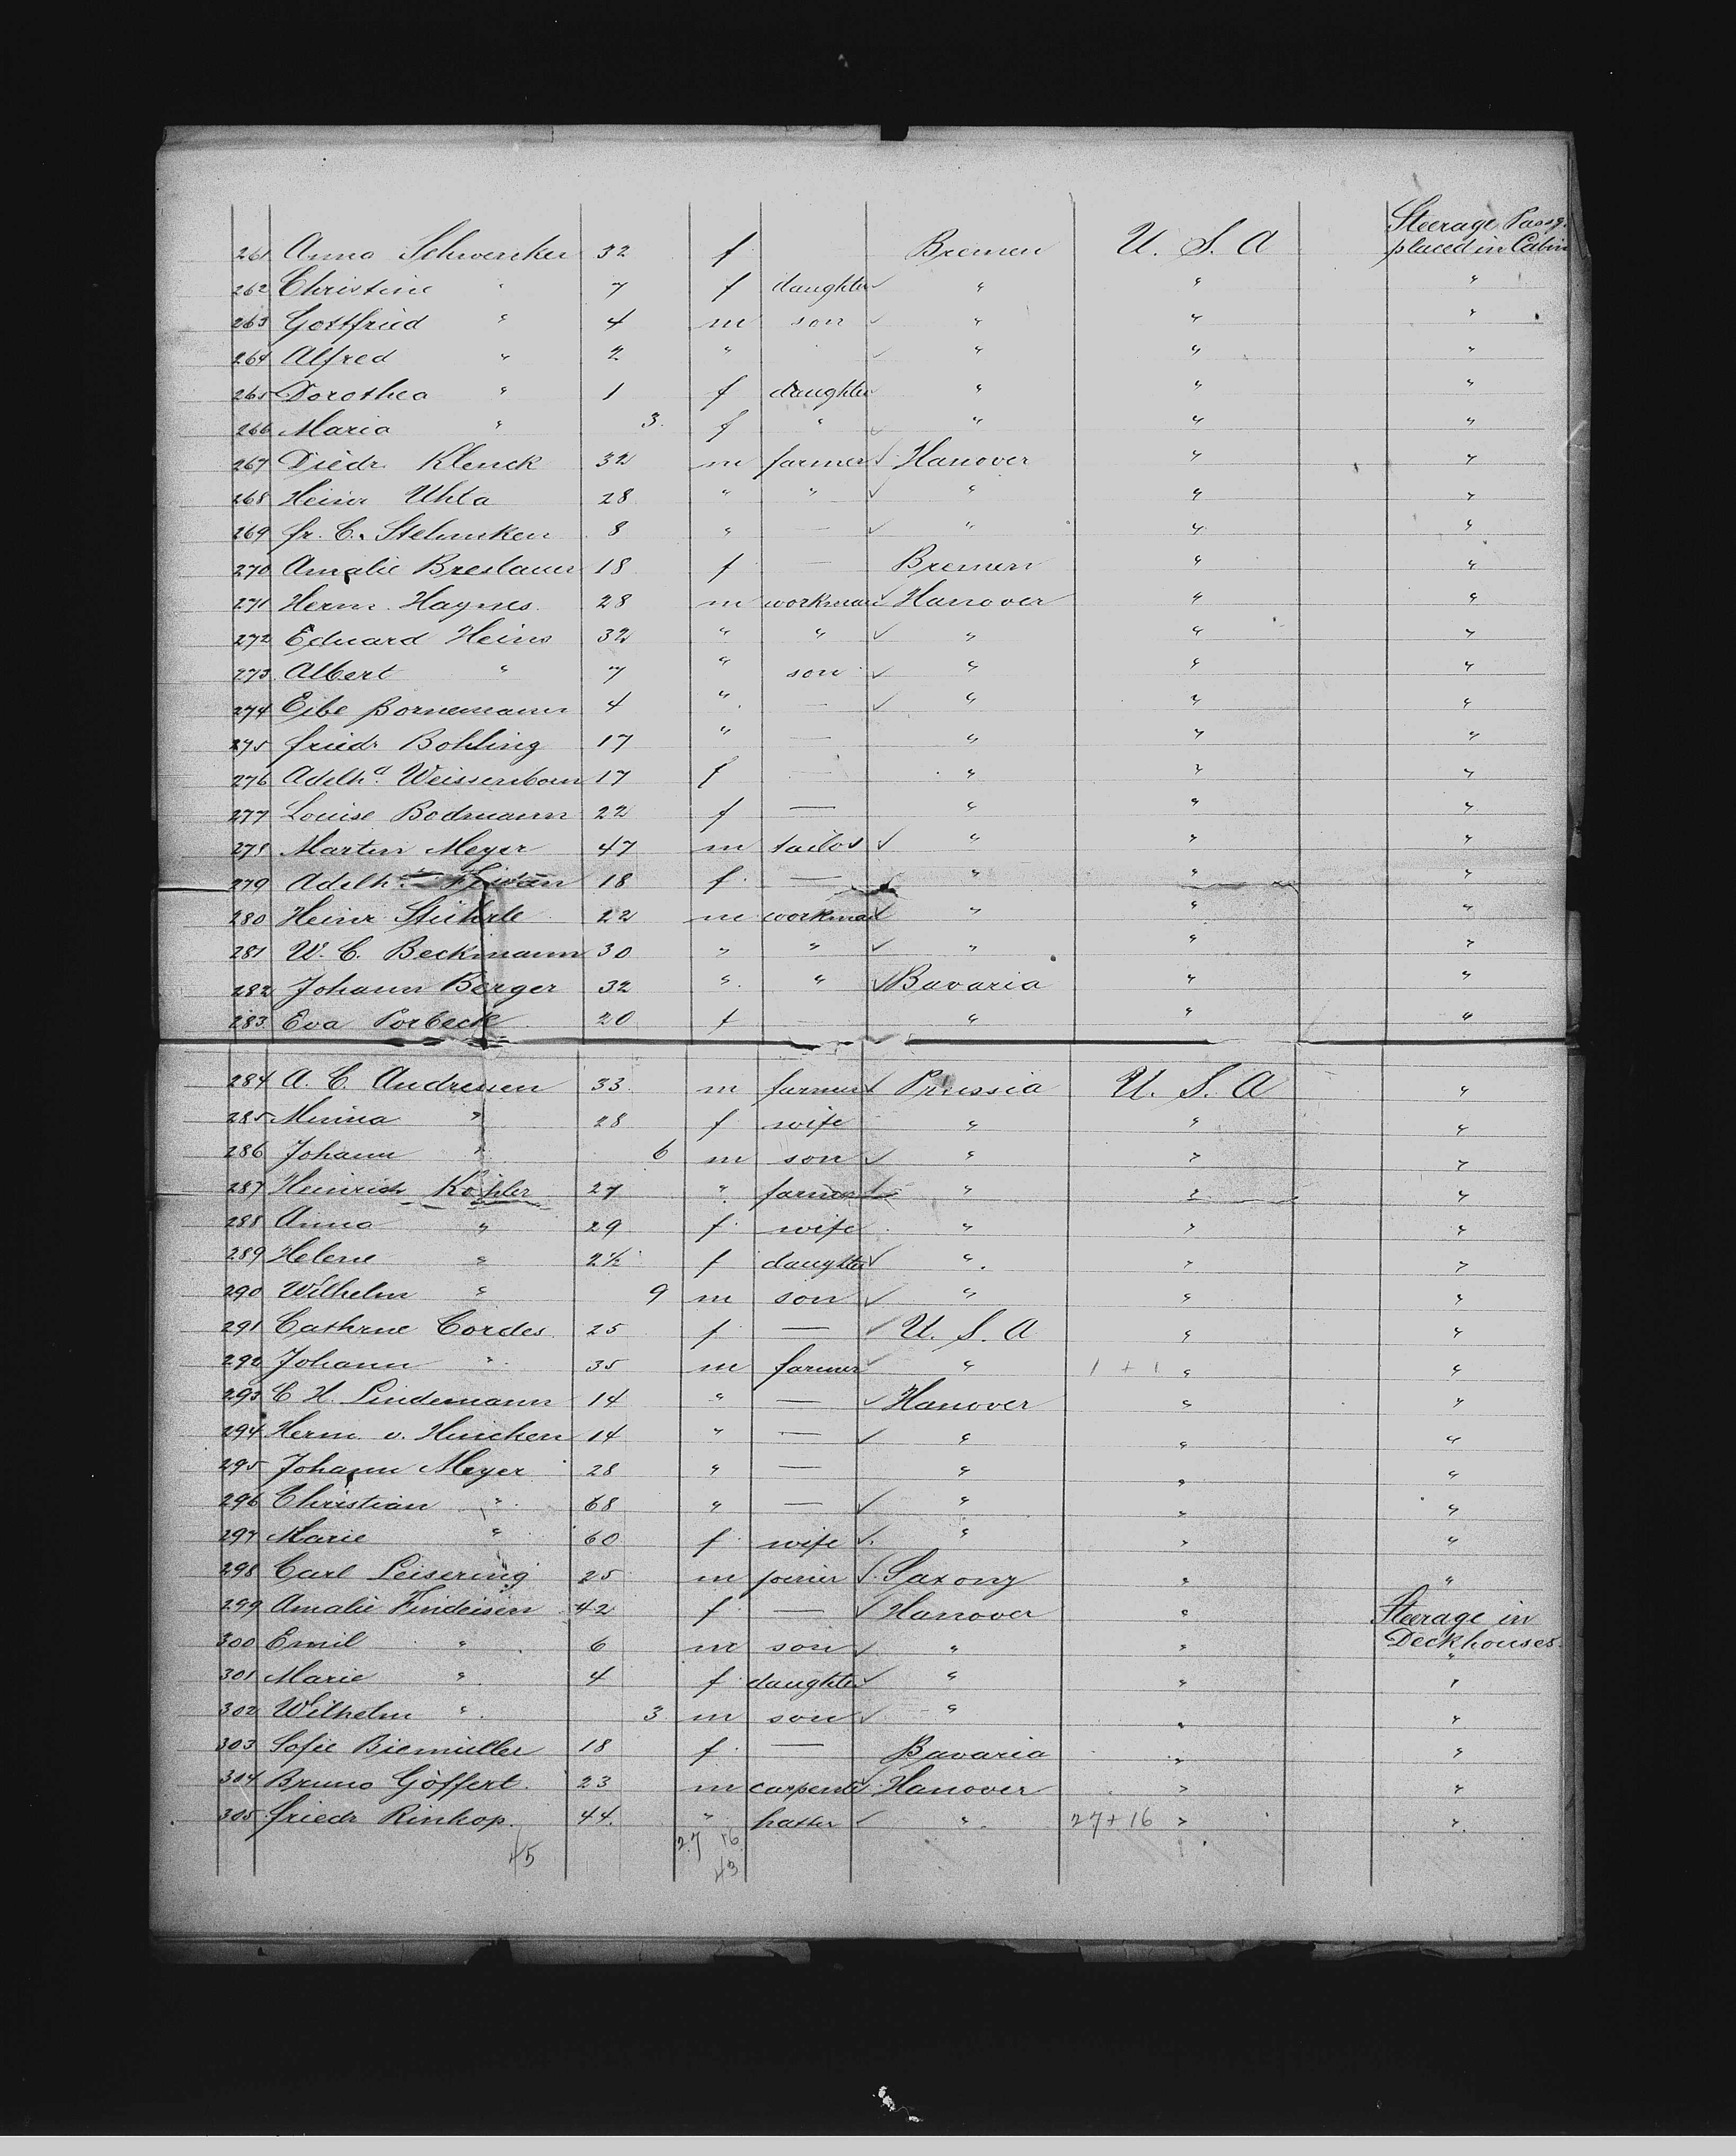 Steerage Passg.
261 Anna Schwencker 32 f Bremen U. S. A placed in Cabin
262 Christine " 7 f daughter ✓ " " "
263 Gottfried " 4 m son ✓ " " "
264 Alfred " 2 " ✓ " " "
265 Dorothea " 1 f daughter " " "
266 Maria " 3. f " ✓ " " "
267 Diedr. Klenck 32 m farmer ✓ Hanover " "
268 Heinr Uhta 28 " " ✓ " " "
269 fr. C. 8 " — ✓ " " "
270 Amalie Breslauer 18 f — Bremen " "
271 Herm. Haynes. 28 m workman ✓ Hanover " "
272 Eduard Heins 32 " " ✓ " " "
273. Albert " 7 " son ✓ " " "
274 Eibe Bornemann 4 " — ✓ " " "
275 friedr Bohling 17 " — " " "
276 Adelhd. Weissenborn 17 f — " " "
277 Louise Bodmann 22 f — " " "
278 Martin Meyer 47 m tailor ✓ " " "
279 Adelh. 18 f. — " " "
280 Heinr Stührle 22 m workman ✓ " " "
281 W. C. Beckmann 30 " " ✓ " " "
282 Johann Berger 32 " " ✓ Bavaria " "
283. Eva Porbeck 20 f — " " "
284 A. C. Andresen 33 m farmer ✓ Prussia U. S. A "
285 Minna " 28 f wife " " "
286 Johann " 6 m son ✓ " " "
287 Heinrich Köhler 27 " farmer ✓ " " "
288 Anna " 29 f. wife " " "
289 Helene " 2½ f daughter ✓ " " "
290 Wilhelm " 9 m son ✓ " " "
291 Cathrne Cordes. 25 f — ✓ U. S. A " "
292 Johann " 35 m farmer ✓ " 1 + 1 " "
293 C H. Lindemann 14 " — ✓ Hanover " "
294 Herm v. Hinchen 14 " — ✓ " " "
295 Johann Meyer 28 " — " " "
296 Christian " 68 " — ✓ " " "
297 Marie " 60 f wife ✓ " " "
298 Carl Leisering 25 m joiner ✓ Saxony " "
299 Amalie Findeisen 42 f — ✓ Hanover " Steerage in
300 Emil " 6 m son ✓ " " Deckhouses
301 Marie " 4 f daughter ✓ " " "
302 Wilhelm " 3 m son ✓ " " "
303 Sofie Biemüller 18 f. — Bavaria " "
304 Bruno Göffert. 23 m carpenter ✓ Hanover " "
305 friedr Rinkop. 44. " hatter ✓ " 27 + 16 " "
27 16
45 43